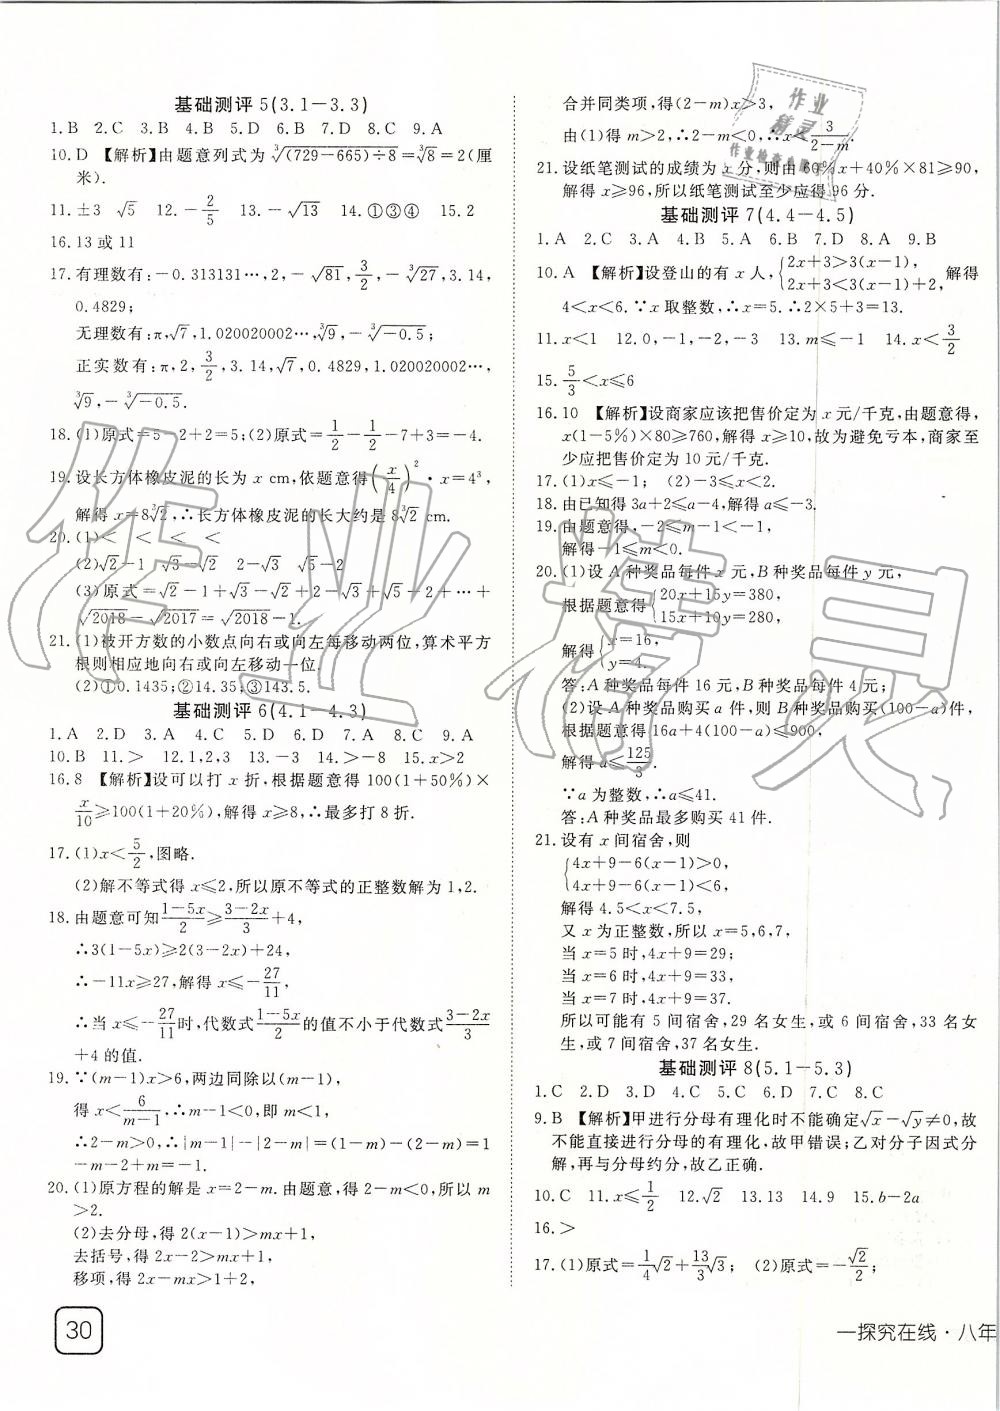 基础测评5(3.1－3.3)
1.B 2.C 3.B 4.B 5.D 6.B 7.D 8.C 9.A
10.D 【解析】由题意列式为∛((729－665)÷8)＝∛8＝2(厘
米).
11.±3 √5 12.－2/5 13.－√13 14.①③④ 15.2
16.13或11
17.有理数有:－0.313131…,2,－√81,3/2,－∛27,3.14,
0.4829;
无理数有:π,√7,1.020020002…,∛9,－∛－0.5;
正实数有:π,2,3/2,3.14,√7,0.4829,1.020020002…,
∛9,－∛－0.5.
18.(1)原式＝5－2＋2＝5;(2)原式＝1/2－1/2－7＋3＝－4.
19.设长方体橡皮泥的长为x cm,依题意得(x/4)²·x＝4³,
解得x＝8∛2,∴长方体橡皮泥的长大约是8∛2 cm.
20.(1)＜ ＜ ＜ ＜
(2)√2－1 √3－√2 2－√3
(3)原式＝√2－1＋√3－√2＋2－√3＋√5－2＋…＋
√2018－√2017＝√2018－1.
21.(1)被开方数的小数点向右或向左每移动两位,算术平方
根则相应地向右或向左移动一位.
(2)①0.1435;②14.35;③143.5.
基础测评6(4.1－4.3)
1.A 2.D 3.A 4.C 5.D 6.C 7.D 8.C 9.A
10.B 11.＞ 12.1,2,3 13.－3 14.＞－8 15.x＞2
16.8 【解析】设可以打x折,根据题意得100(1＋50%)×
x/10≥100(1＋20%),解得x≥8,∴最多打8折.
17.(1)x＜5/2,图略.
(2)解不等式得x≤2,所以原不等式的正整数解为1,2.
18.由题意可知(1－5x)/2≥(3－2x)/3＋4,
∴3(1－5x)≥2(3－2x)＋24,
∴－11x≥27,解得x≤－27/11,
∴当x≤－27/11时,代数式(1－5x)/2的值不小于代数式(3－2x)/3
＋4的值.
19.∵(m－1)x＞6,两边同除以(m－1),
得x＜6/(m－1),∴m－1＜0,即m＜1,
∴2－m＞0,∴|m－1|－|2－m|＝(1－m)－(2－m)＝1
－m－2＋m＝－1.
20.(1)原方程的解是x＝2－m.由题意,得2－m＜0,所以m
＞2.
(2)去分母,得2(x－1)＞mx＋1,
去括号,得2x－2＞mx＋1,
移项,得2x－mx＞1＋2,
30
合并同类项,得(2－m)x＞3,
由(1)得m＞2,∴2－m＜0,∴x＜3/(2－m).
21.设纸笔测试的成绩为x分,则由60%x＋40%×81≥90,
解得x≥96,所以纸笔测试至少应得96分.
基础测评7(4.4－4.5)
1.A 2.C 3.A 4.B 5.B 6.B 7.D 8.A 9.B
10.A 【解析】设登山的有x人,{2x＋3＞3(x－1), 2x＋3＜3(x－1)＋2,解得
4＜x＜6.∵x取整数,∴x＝5.∴2×5＋3＝13.
11.x＜1 12.0,－1,－2,－3 13.m≤－1 14.x＜3/2
15.5/3＜x≤6
16.10 【解析】设商家应该把售价定为x元/千克,由题意得,
x(1－5%)×80≥760,解得x≥10,故为避免亏本,商家至
少应把售价定为10元/千克.
17.(1)x≤－1; (2)－3≤x＜2.
18.由已知得3a＋2≤a－4,解得a≤－3.
19.由题意得,－2≤m－1＜－1,
解得－1≤m＜0.
20.(1)设A种奖品每件x元,B种奖品每件y元,
根据题意得{20x＋15y＝380, 15x＋10y＝280,
解得{x＝16, y＝4.
答:A种奖品每件16元,B种奖品每件4元;
(2)设A种奖品购买a件,则B种奖品购买(100－a)件,
根据题意得16a＋4(100－a)≤900,
解得a≤125/3.
∵a为整数,∴a≤41.
答:A种奖品最多购买41件.
21.设有x间宿舍,则
{4x＋9－6(x－1)＞0,
4x＋9－6(x－1)＜6,
解得4.5＜x＜7.5,
又x为正整数,所以x＝5,6,7,
当x＝5时,4x＋9＝29;
当x＝6时,4x＋9＝33;
当x＝7时,4x＋9＝37.
所以可能有5间宿舍,29名女生,或6间宿舍,33名女
生,或7间宿舍,37名女生.
基础测评8(5.1－5.3)
1.C 2.D 3.D 4.C 5.C 6.D 7.C 8.C
9.B 【解析】甲进行分母有理化时不能确定√x－√y≠0,故
不能直接进行分母的有理化,故甲错误;乙对分子因式分
解,再与分母约分,故乙正确.
10.C 11.x≤1/2 12.√2 13.13 14.9 15.b－2a
16.＞
17.(1)原式＝1/4√2＋13/3√3; (2)原式＝－√2/2;
一探究在线·八年
作业精灵
作业
精灵